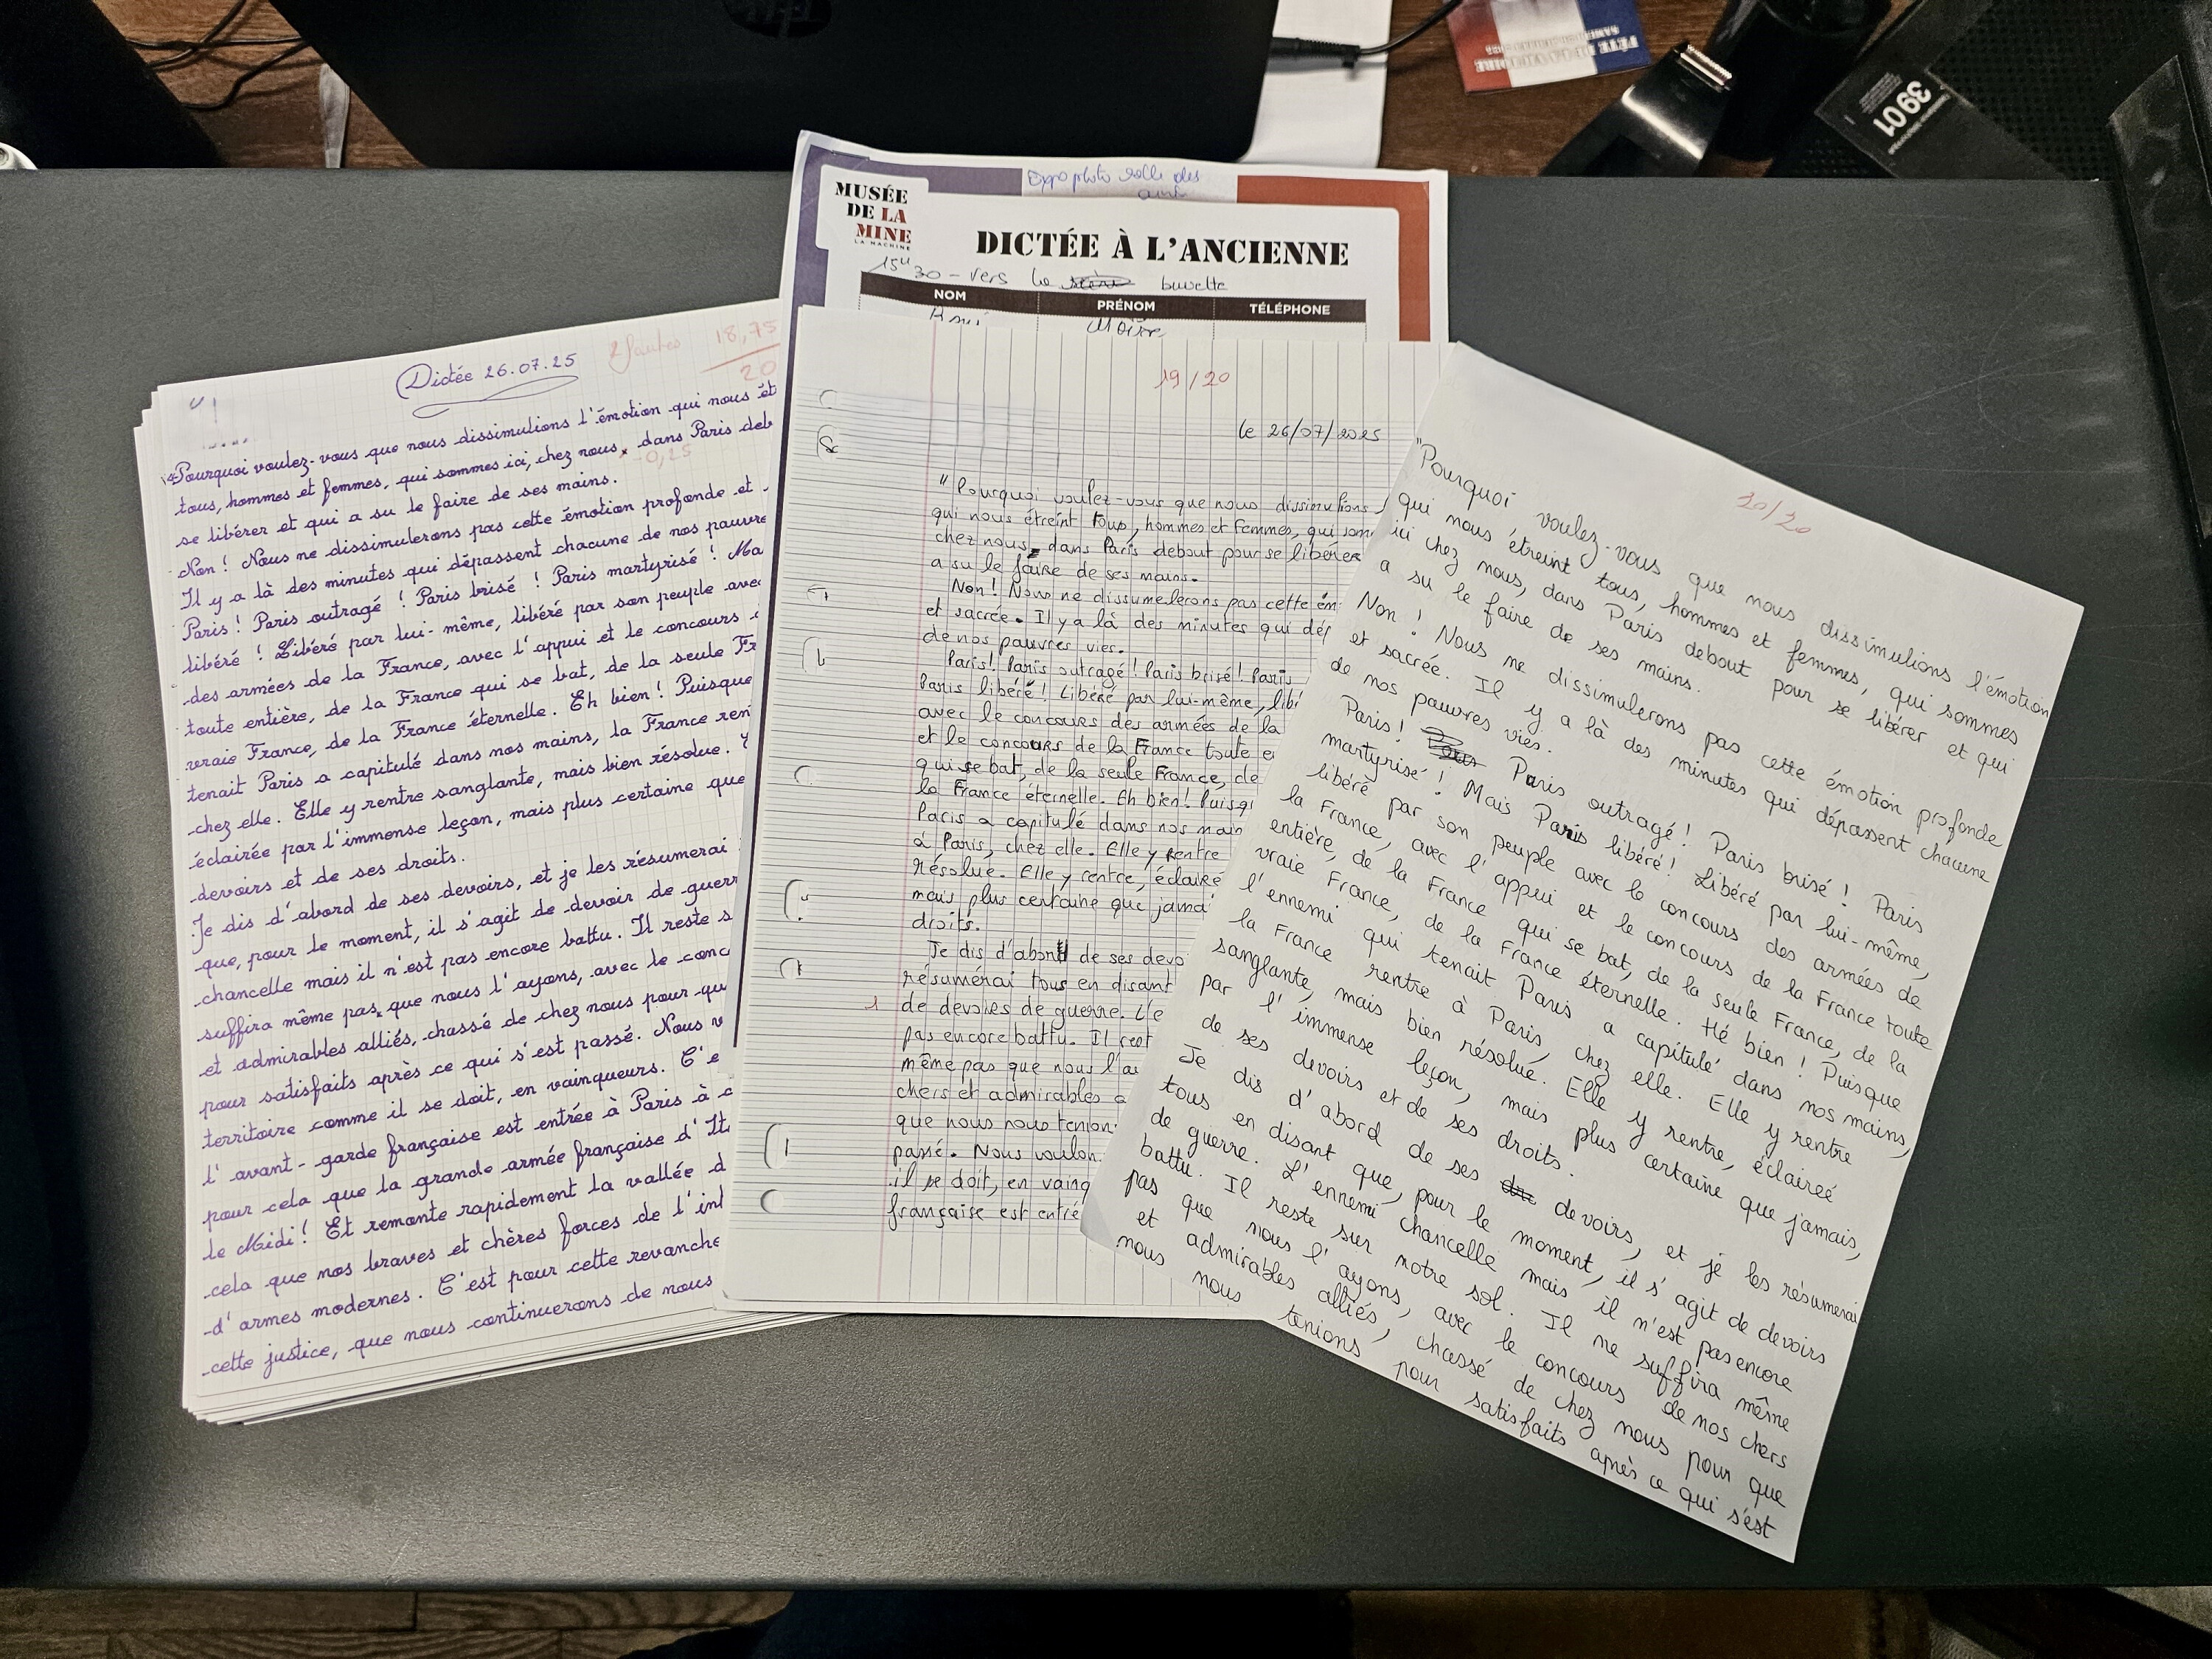 FÊTE DE LA VICTOIRE
3901
Expo photo salle des
MUSÉE
DE LA
MINE
LA MACHINE
DICTÉE À L'ANCIENNE
15H30 - vers la buvette
NOM PRÉNOM TÉLÉPHONE
Dictée 26.07.25
2 fautes 18,75
20
"Pourquoi voulez-vous que nous dissimulions l'émotion qui nous ét
tous, hommes et femmes, qui sommes ici, chez nous, dans Paris deb
-0,25
se libérer et qui a su le faire de ses mains.
Non ! Nous ne dissimulerons pas cette émotion profonde et
Il y a là des minutes qui dépassent chacune de nos pauvre
Paris ! Paris outragé ! Paris brisé ! Paris martyrisé ! Ma
libéré ! Libéré par lui-même, libéré par son peuple avec
des armées de la France, avec l'appui et le concours
toute entière, de la France qui se bat, de la seule Fr
vraie France, de la France éternelle. Eh bien ! Puisque
tenait Paris a capitulé dans nos mains, la France ren
chez elle. Elle y rentre sanglante, mais bien résolue.
éclairée par l'immense leçon, mais plus certaine que
devoirs et de ses droits.
Je dis d'abord de ses devoirs, et je les résumerai
que, pour le moment, il s'agit de devoir de guerr
chancelle mais il n'est pas encore battu. Il reste s
suffira même pas, que nous l'ayons, avec le conc
et admirables alliés, chassé de chez nous pour qu
pour satisfaits après ce qui s'est passé. Nous v
territoire comme il se doit, en vainqueurs. C'e
l'avant-garde française est entrée à Paris à c
pour cela que la grande armée française d'Ita
le Midi ! Et remonte rapidement la vallée d
cela que nos braves et chères forces de l'int
d'armes modernes. C'est pour cette revanche
cette justice, que nous continuerons de nous
19/20
le 26/07/2025
"Pourquoi voulez-vous que nous dissimulions
qui nous étreint tous, hommes et femmes, qui som
chez nous, dans Paris debout pour se libérer
a su le faire de ses mains.
Non ! Nous ne dissumelerons pas cette ém
et sacrée. Il y a là des minutes qui dép
de nos pauvres vies.
Paris ! Paris outragé ! Paris brisé ! Paris
Paris libéré ! Libéré par lui-même, libé
avec le concours des armées de la
et le concours de la France toute e
qui se bat, de la seule France, de
la France éternelle. Eh bien ! Puisqu
Paris a capitulé dans nos main
à Paris, chez elle. Elle y rentre
résolue. Elle y rentre, éclairé
mais plus certaine que jama
droits.
Je dis d'abord de ses devo
résumérai tous en disant
1 de devoirs de guerre. L'e
pas encore battu. Il rest
même pas que nous l'a
chers et admirables a
que nous nous tenion
passé. Nous voulon
il se doit, en vainq
française est entré
20/20
"Pourquoi voulez-vous que nous dissimulions l'émotion
qui nous étreint tous, hommes et femmes, qui sommes
ici chez nous, dans Paris debout pour se libérer et qui
a su le faire de ses mains.
Non ! Nous ne dissimulerons pas cette émotion profonde
et sacrée. Il y a là des minutes qui dépassent chacune
de nos pauvres vies.
Paris ! Paris outragé ! Paris brisé ! Paris
martyrisé ! Mais Paris libéré ! Libéré par lui-même,
libéré par son peuple avec le concours des armées de
la France, avec l'appui et le concours de la France toute
entière, de la France qui se bat, de la seule France, de la
vraie France, de la France éternelle. Hé bien ! Puisque
l'ennemi qui tenait Paris a capitulé dans nos mains,
la France rentre à Paris, chez elle. Elle y rentre
sanglante, mais bien résolue. Elle y rentre, éclaireé
par l'immense leçon, mais plus certaine que jamais,
de ses devoirs et de ses droits.
Je dis d'abord de ses devoirs, et je les résumerai
tous en disant que, pour le moment, il s'agit de devoirs
de guerre. L'ennemi chancelle mais il n'est pas encore
battu. Il reste sur notre sol. Il ne suffira même
pas que nous l'ayons, avec le concours de nos chers
et admirables alliés, chassé de chez nous pour que
nous nous tenions pour satisfaits après ce qui s'est